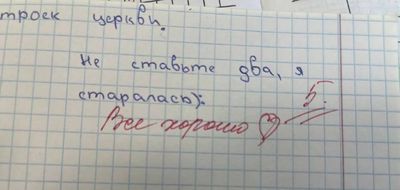 троек церкви.
Не ставьте два, я
старалась):
5.
Все хорошо ♡